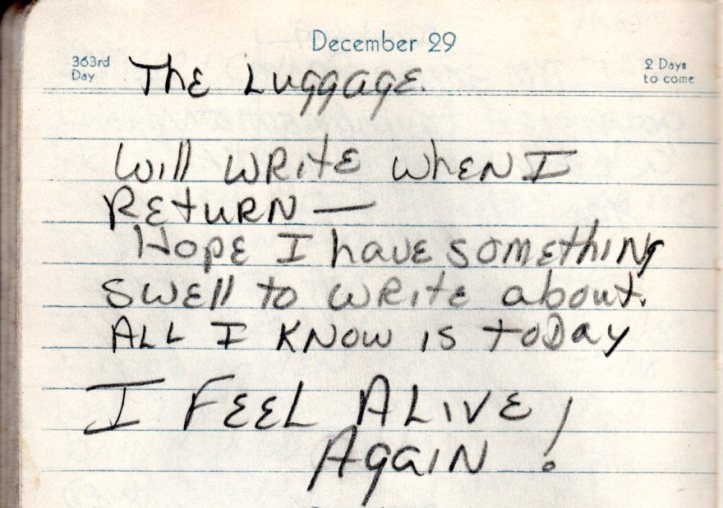 December 29
363rd
Day
2 Days
to come
The Luggage.
Will WRitE whEN I
REtuRN —
Hope I have something
swell to write about.
ALL I KNow is toDay
I FEEL ALIVE!
AgaiN!